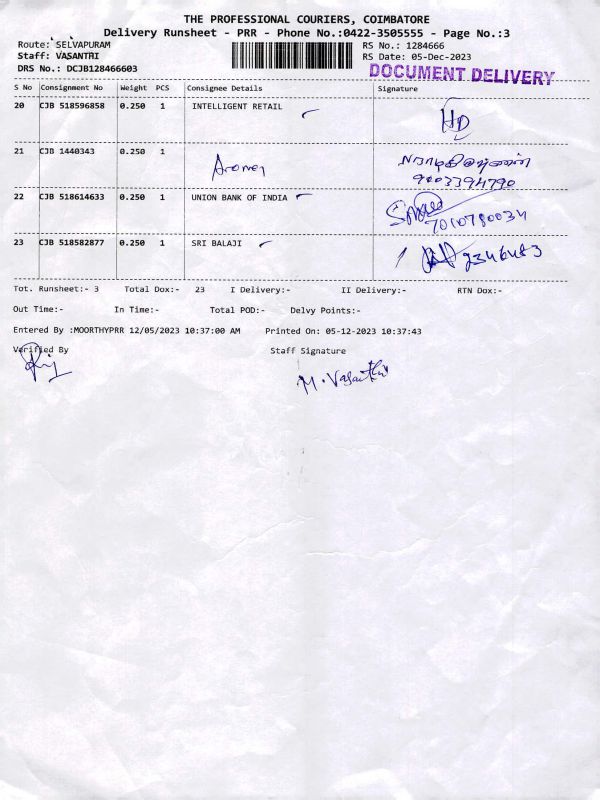 THE PROFESSIONAL COURIERS, COIMBATORE
Delivery Runsheet - PRR - Phone No.:0422-3505555 - Page No.:3
Route: SELVAPURAM RS No.: 1284666
Staff: VASANTRI RS Date: 05-Dec-2023
DRS No.: DCJB128466603 DOCUMENT DELIVERY
S No Consignment No Weight PCS Consignee Details Signature
20 CJB 518596858 0.250 1 INTELLIGENT RETAIL
21 CJB 1440343 0.250 1
9003394790
22 CJB 518614633 0.250 1 UNION BANK OF INDIA
7010780034
23 CJB 518582877 0.250 1 SRI BALAJI
2346483
Tot. Runsheet:- 3 Total Dox:- 23 I Delivery:- II Delivery:- RTN Dox:-
Out Time:- In Time:- Total POD:- Delvy Points:-
Entered By :MOORTHYPRR 12/05/2023 10:37:00 AM Printed On: 05-12-2023 10:37:43
Verified By Staff Signature
M. Vasanthi